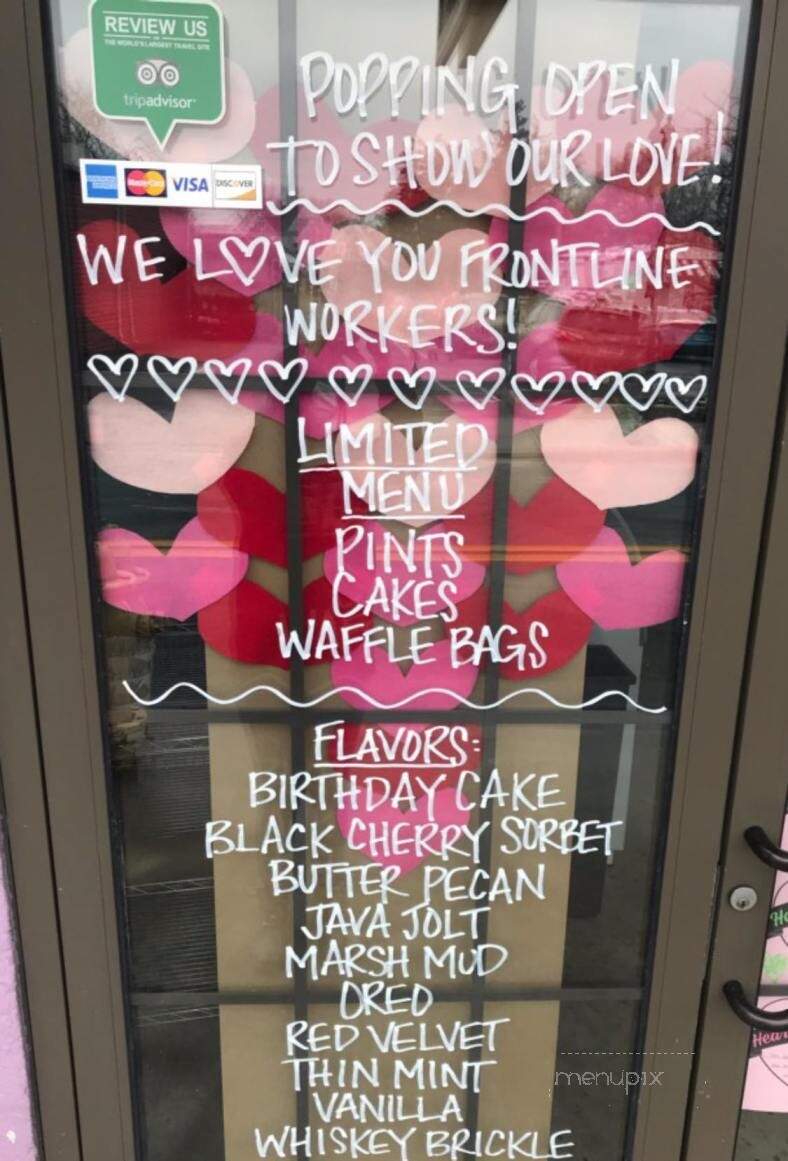 REVIEW US
THE WORLD'S LARGEST TRAVEL SITE
tripadvisor
AMERICAN EXPRESS MasterCard VISA DISCOVER
POPPING OPEN
TO SHOW OUR LOVE!
WE L♡VE YOU FRONTLINE
WORKERS!
LIMITED
MENU
PINTS
CAKES
WAFFLE BAGS
FLAVORS:
BIRTHDAY CAKE
BLACK CHERRY SORBET
BUTTER PECAN
JAVA JOLT
MARSH MUD
OREO
RED VELVET
THIN MINT
VANILLA
WHISKEY BRICKLE
menupix